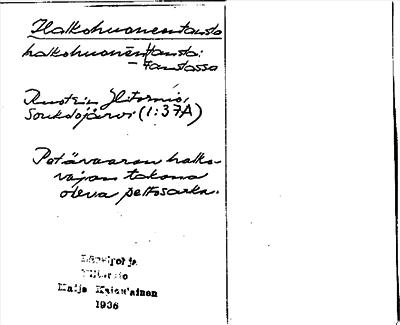 Halkohuonentausta
halkohuonentausta:
– taustassa
Ruotsin Ylitornio,
Soukolojärvi (1:37A)
Petäväaaran halko-
vajan takana
oleva peltosarka.
Länsipohja
Ylitornio
Maija
1936